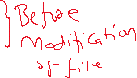 Before
modification
of file